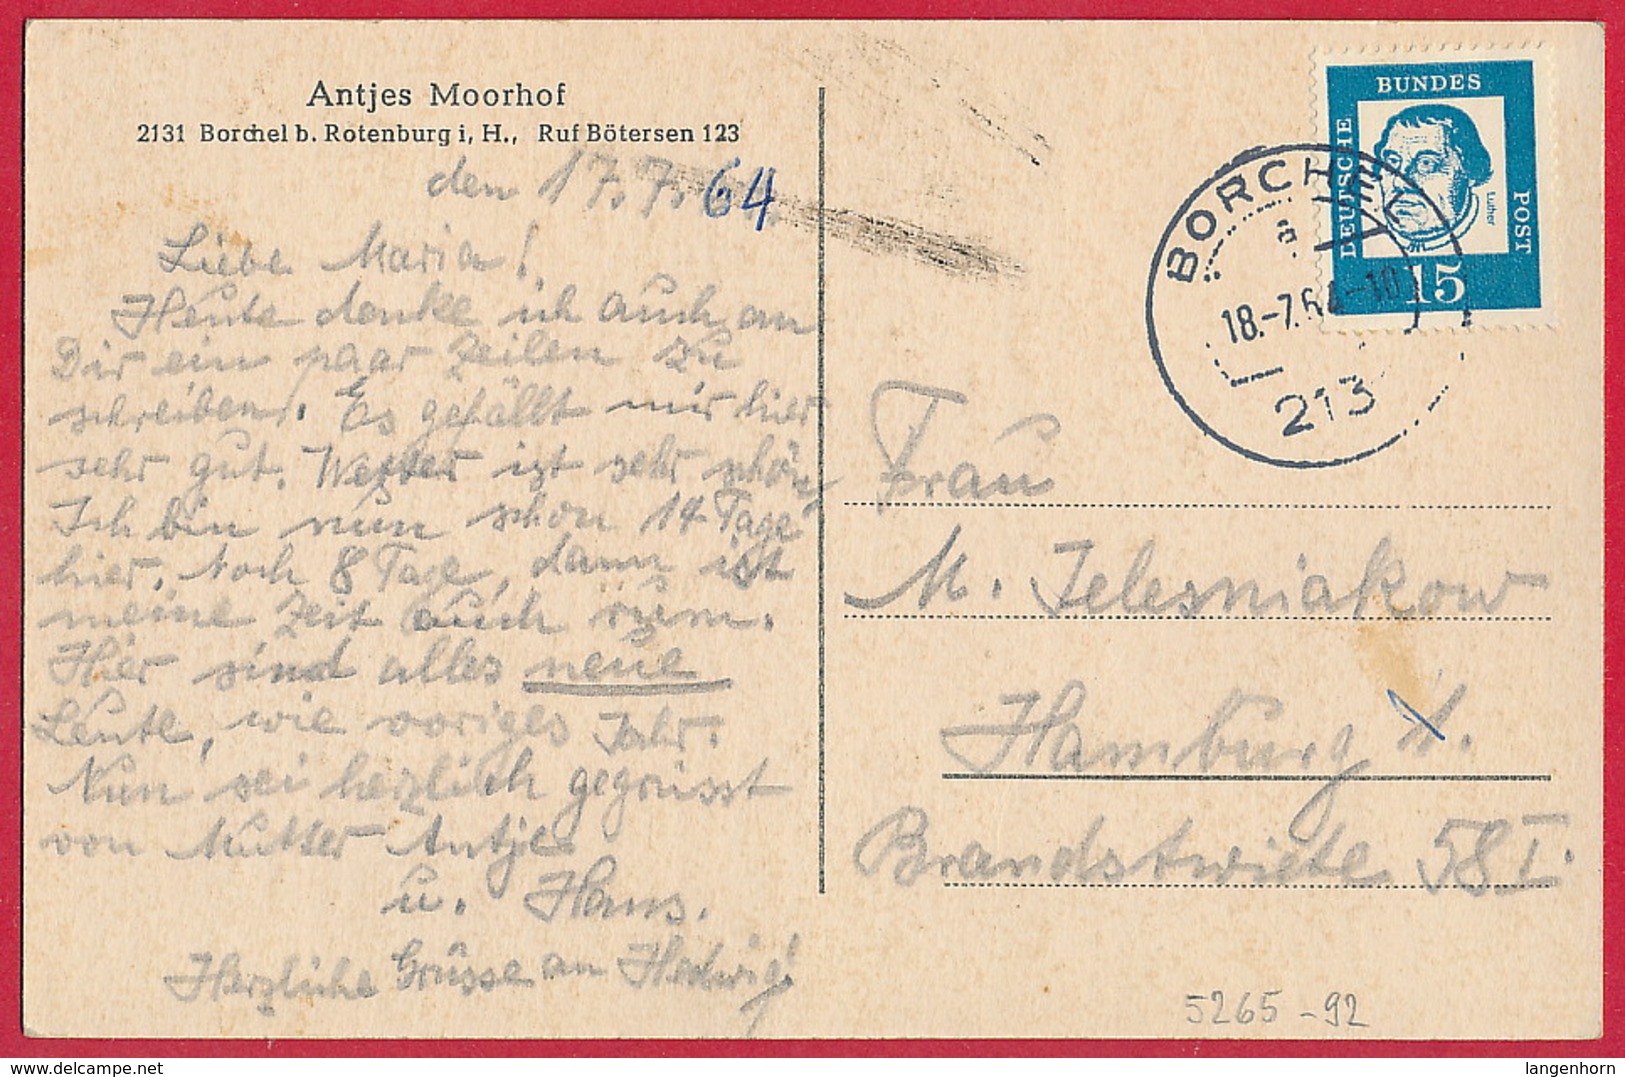 Antjes Moorhof
2131 Borchel b. Rotenburg i, H., Ruf Bötersen 123
den 17.7.64
Liebe Maria!
Heute denke ich auch an
Dir ein paar Zeilen zu
schreiben. Es gefällt mir hier
sehr gut. Wetter ist sehr schön,
Ich bin nun schon 14 Tage
hier. Noch 8 Tage, dann ist
meine Zeit auch rum.
Hier sind alles neue
Leute, wie voriges Jahr.
Nun sei herzlich gegrüsst
von Mutter Antje
u. Hans.
Herzliche Grüsse an Hedwig!
DEUTSCHE BUNDES POST
Luther
15
BORCHEL
a
18.-7.64-10
213
Frau
M. Jelesniakow
Hamburg 1.
Brandstwiete 58 I.
5265-92
langenhorn